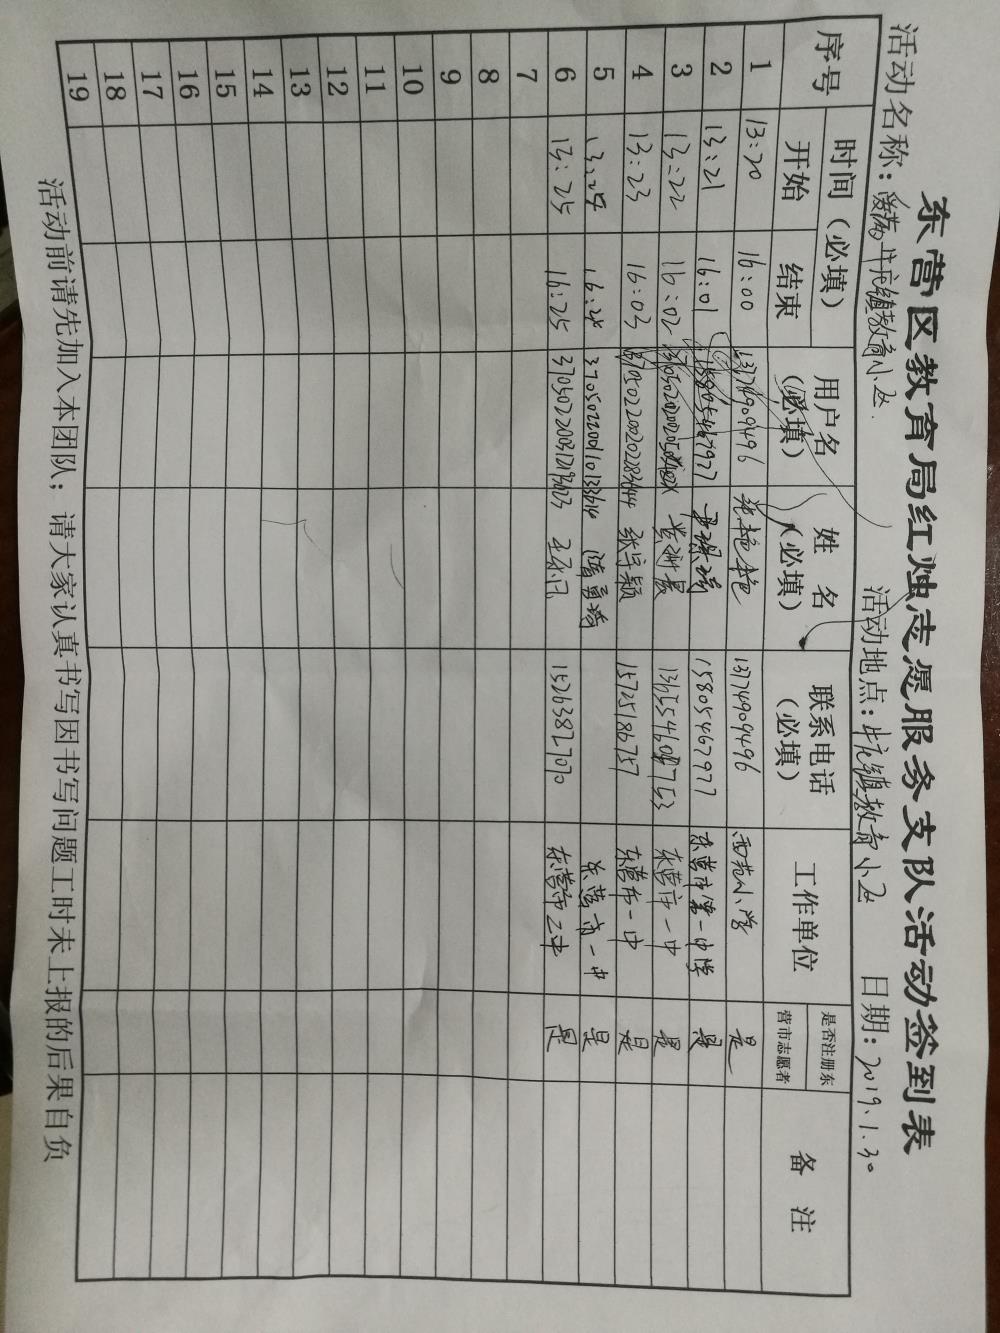 东营区教育局红烛志愿服务支队活动签到表
活动名称: 牛庄镇教育小区 活动地点:牛庄镇教育小区 日期:2019.1.30
序号 时间(必填) 用户名(必填) 姓名(必填) 联系电话(必填) 工作单位 是否注册东营市志愿者 备注
开始 结束
1 13:20 16:00 13774909496 张艳艳 13774909496 西苑小学 是
2 13:21 16:01 15805467977 15805467977 东营市第一中学 是
3 13:22 16:02 东营市一中 是
4 13:23 16:03 370502200202283644 张宇颖 15725186757 东营市一中 是
5 13:24 16:24 东营市一中 是
6 13:25 16:25 15263827070 东营市二中 是
7
8
9
10
11
12
13
14
15
16
17
18
19
活动前请先加入本团队;请大家认真书写因书写问题工时未上报的后果自负